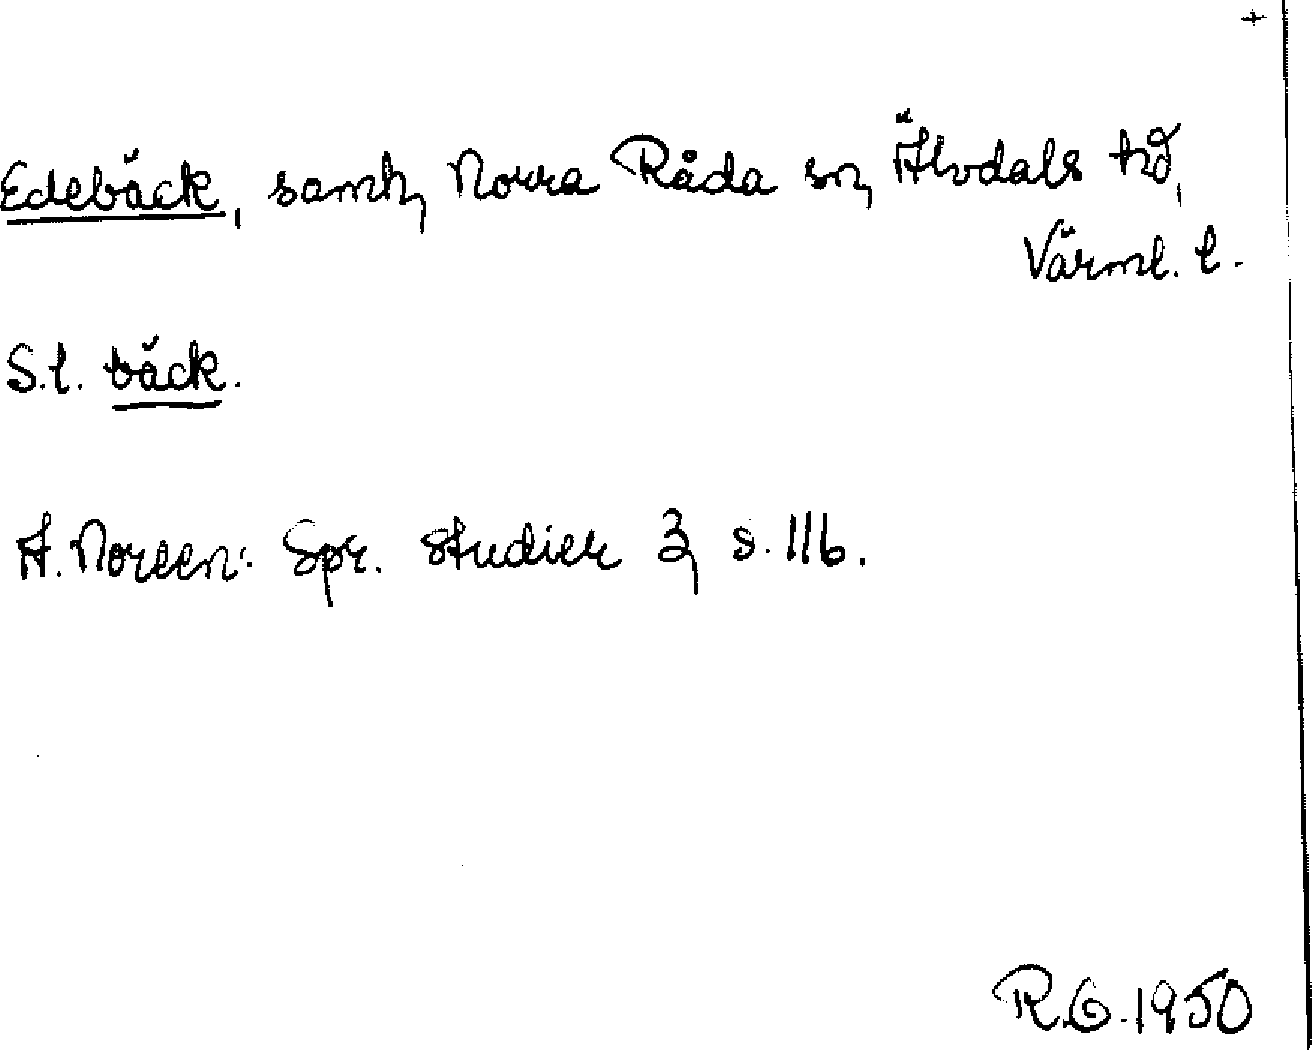 +
Edebäck, samh, Norra Råda sn, Älvdals hd,
Värml. l.
S.l. bäck.
A. Noreen: Spr. studier 3, s. 116.
R.G. 1950